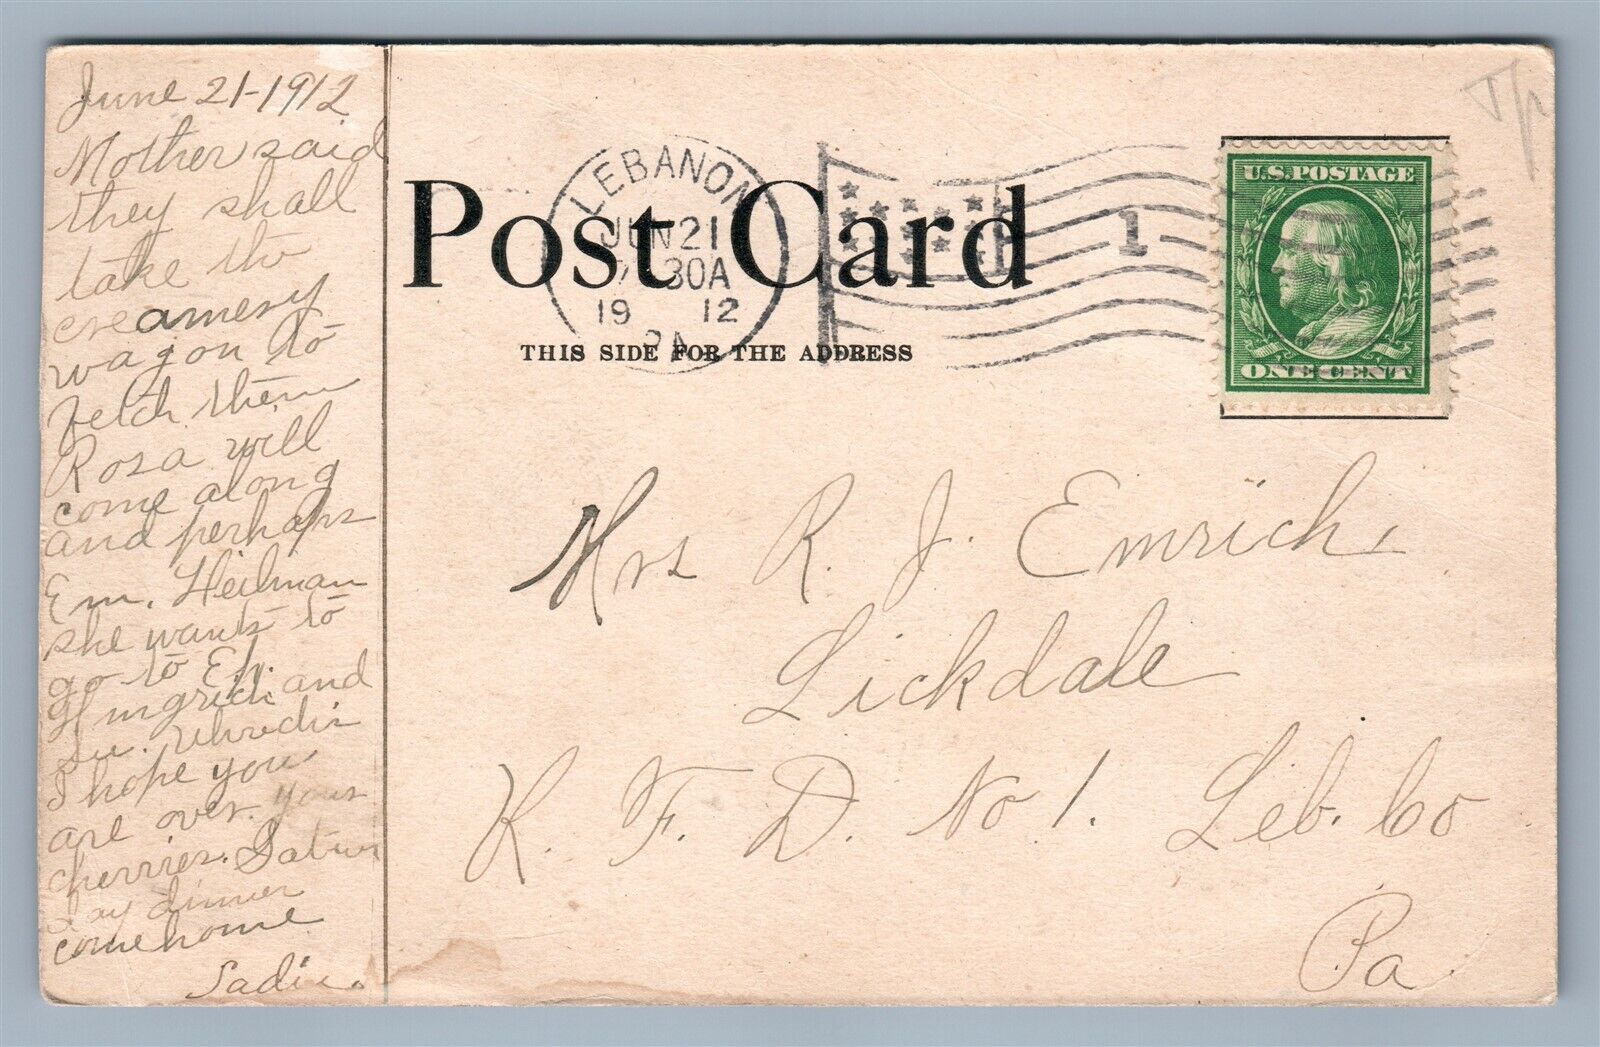 June 21-1912
Mother said
they shall
take the
creamery
wagon to
fetch them
Rosa will
come along
and perhaps
Em. Heilman
she wants to
go to Eh.
Gingrich and
Su.
I hope you
are over your
cherries. Satur
day dinner
come home
Sadie.
Post Card
THIS SIDE FOR THE ADDRESS
LEBANON
JUN 21
30A
19 12
PA
1
U.S. POSTAGE
ONE CENT
Mrs R. J. Emrich,
Lickdale
R. F. D. No 1. Leb. Co
Pa.